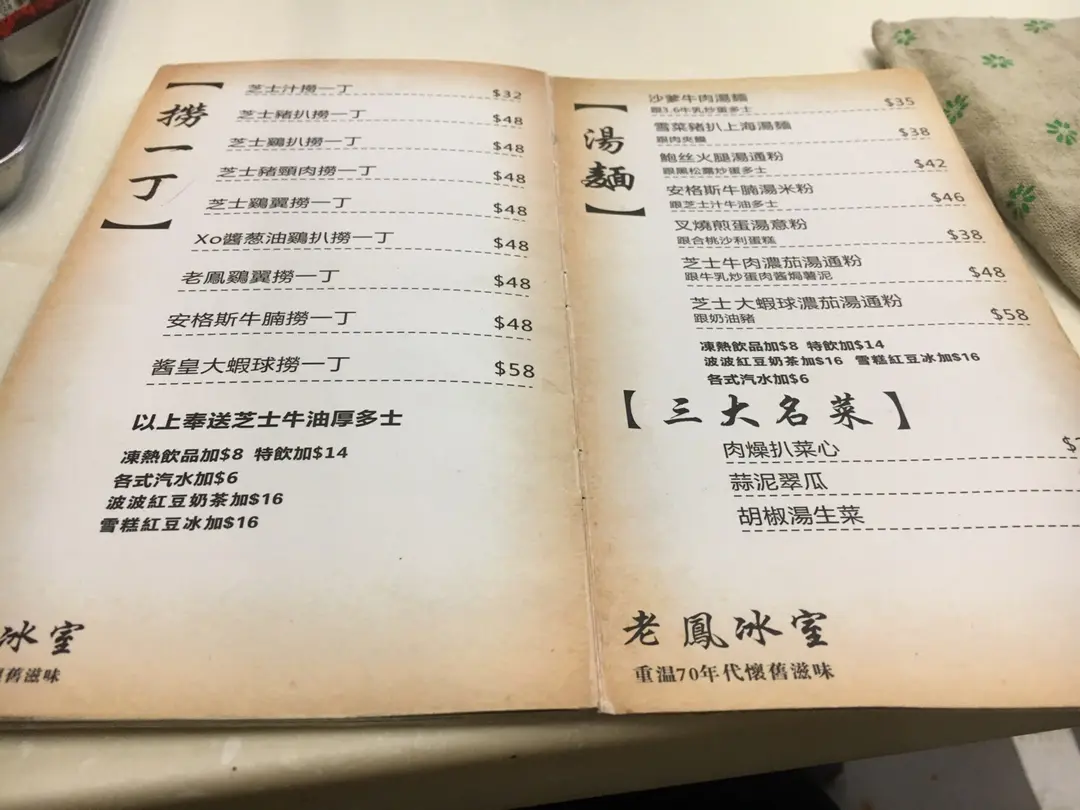 【撈一丁】
芝士汁撈一丁 $32
芝士豬扒撈一丁 $48
芝士鷄扒撈一丁 $48
芝士豬頸肉撈一丁 $48
芝士鷄翼撈一丁 $48
Xo醬葱油鷄扒撈一丁 $48
老鳳鷄翼撈一丁 $48
安格斯牛腩撈一丁 $48
酱皇大蝦球撈一丁 $58
以上奉送芝士牛油厚多士
凍熱飲品加$8 特飲加$14
各式汽水加$6
波波紅豆奶茶加$16
雪糕紅豆冰加$16
冰室
舊滋味
【湯麵】
沙爹牛肉湯麵 $35
跟3.6牛乳炒蛋多士
雪菜豬扒上海湯麵 $38
跟肉夾饃
鮑丝火腿湯通粉 $42
跟黑松露炒蛋多士
安格斯牛腩湯米粉 $46
跟芝士汁牛油多士
叉燒煎蛋湯意粉 $38
跟合桃沙利蛋糕
芝士牛肉濃茄湯通粉 $48
跟牛乳炒蛋肉酱焗薯泥
芝士大蝦球濃茄湯通粉 $58
跟奶油豬
凍熱飲品加$8 特飲加$14
波波紅豆奶茶加$16 雪糕紅豆冰加$16
各式汽水加$6
【三大名菜】
肉燥扒菜心 $
蒜泥翠瓜
胡椒湯生菜
老鳳冰室
重温70年代懷舊滋味